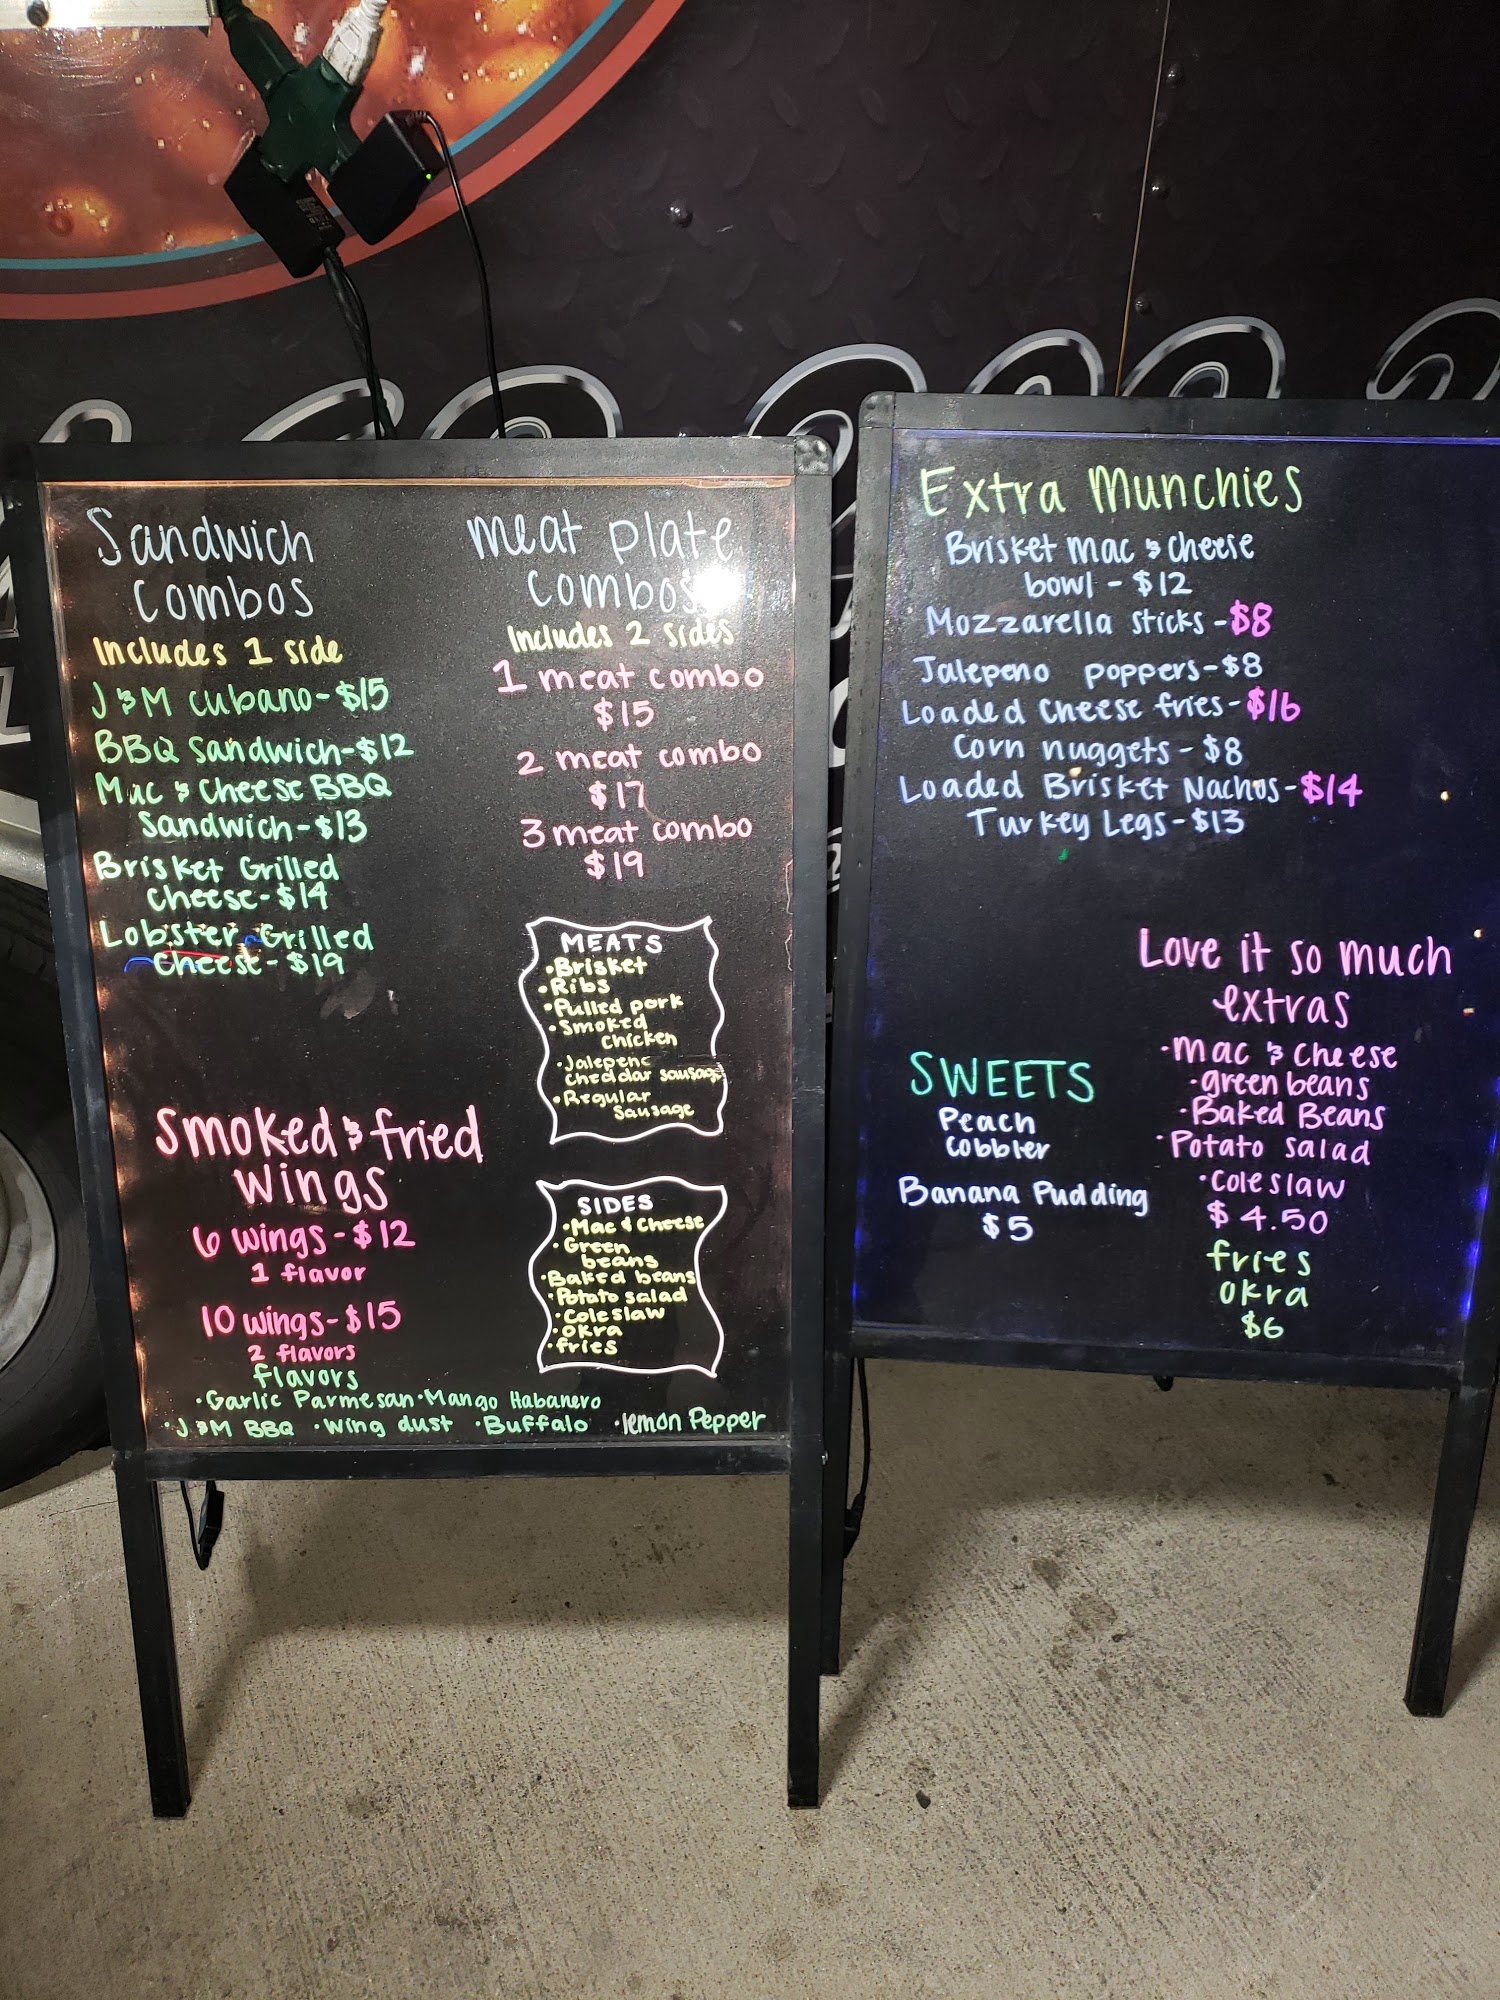 Sandwich
Combos
Includes 1 side
J & M Cubano - $15
BBQ Sandwich - $12
Mac & Cheese BBQ
Sandwich - $13
Brisket Grilled
Cheese - $14
Lobster Grilled
Cheese - $19
Smoked & fried
Wings
6 wings - $12
1 flavor
10 wings - $15
2 flavors
flavors
• Garlic Parmesan • Mango Habanero
• J & M BBQ • Wing dust • Buffalo • lemon Pepper
meat plate
combos
Includes 2 sides
1 meat combo
$15
2 meat combo
$17
3 meat combo
$19
MEATS
• Brisket
• Ribs
• Pulled pork
• Smoked
Chicken
• Jalepeno
cheddar sausage
• Regular
Sausage
SIDES
• Mac & Cheese
• Green
beans
• Baked beans
• Potato salad
• Coleslaw
• okra
• fries
Extra Munchies
Brisket Mac & Cheese
bowl - $12
Mozzarella sticks - $8
Jalepeno poppers - $8
Loaded Cheese fries - $16
Corn nuggets - $8
Loaded Brisket Nachos - $14
Turkey Legs - $13
SWEETS
Peach
Cobbler
Banana Pudding
$5
Love it so much
extras
• Mac & Cheese
• green beans
• Baked Beans
• Potato salad
• Coleslaw
$4.50
fries
okra
$6